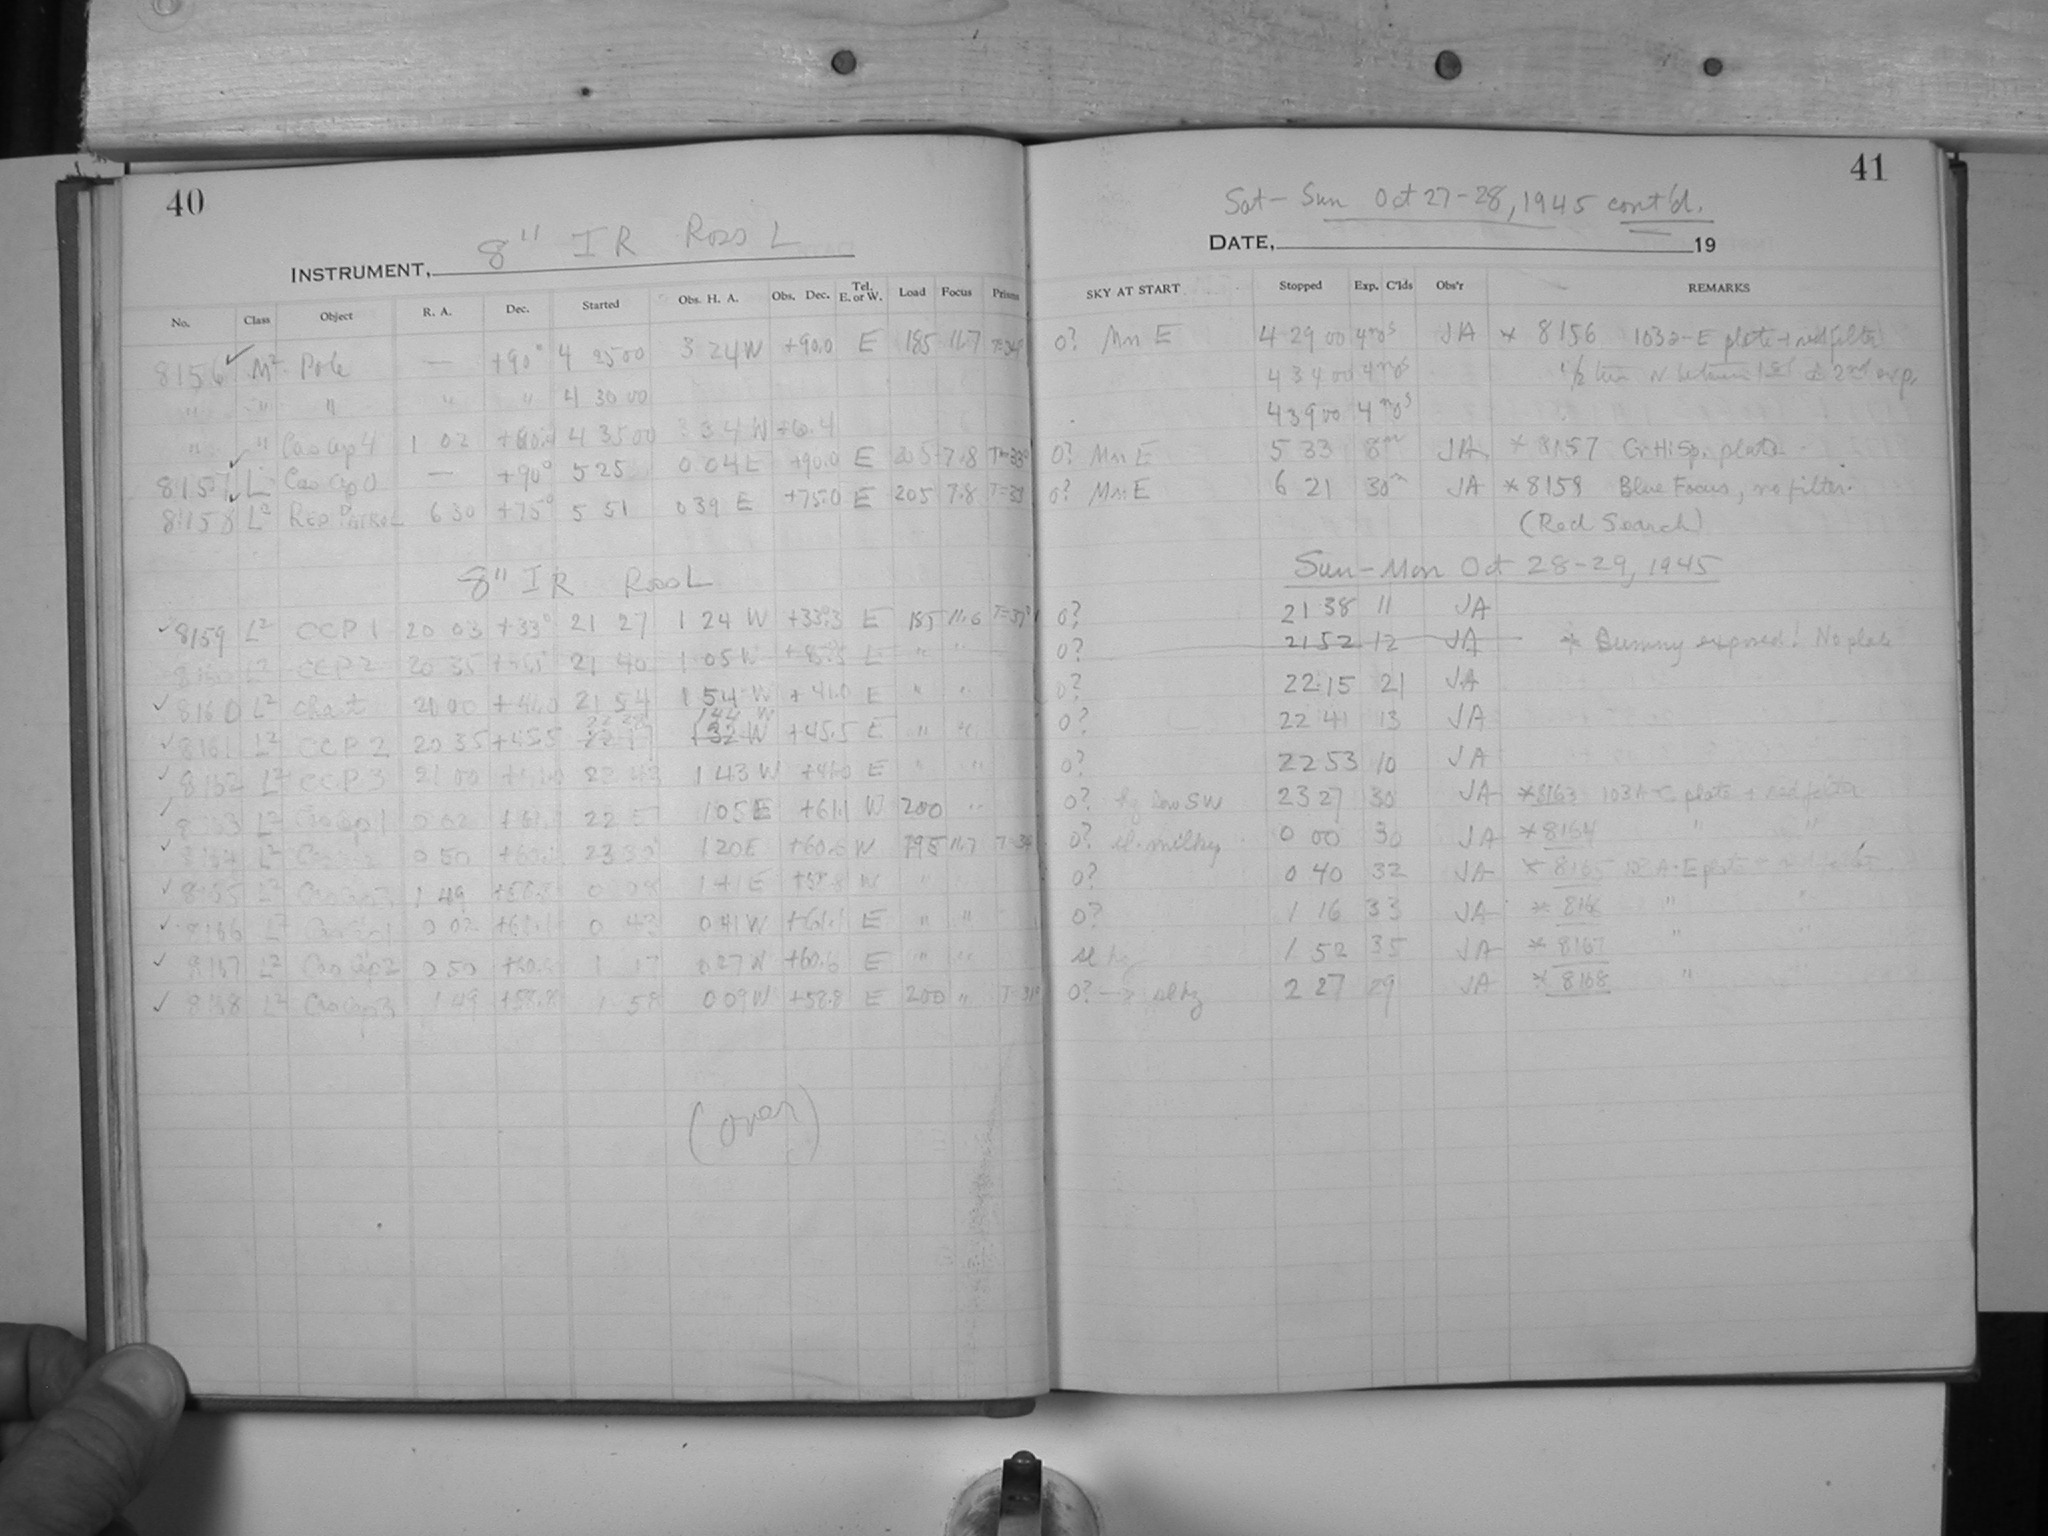 40
INSTRUMENT, 8" IR Ross L
No. Class Object R. A. Dec. Started Obs. H. A. Obs. Dec. Tel. E. or W. Load Focus Prisms
8156 M² Pole — +90° 4 25 00 3 24 W +90.0 E 185 11.7 T=34°
" " " " " 4 30 00
" " Cas Cep 4 1 02 +60.4 4 35 00 3 34 W +60.4
8157 L Cas Cep 0 — +90° 5 25 0 04 E +90.0 E 205 7.8 T=33°
8158 L² RED PATROL 6 30 +75° 5 51 0 39 E +75.0 E 205 7.8 T=33
8" IR Ross L
8159 L² CCP 1 20 03 +33° 21 27 1 24 W +33.3 E 185 11.6 T=37°
L² CCP 2 20 35 21 40 1 05 W E " "
8160 L² Chart 20 00 +41.0 21 54 1 54 W +41.0 E " "
8161 L² CCP 2 20 35 +45.5 22 28 1 44 W +45.5 E " "
8162 L² CCP 3 21 00 22 43 1 43 W +41.0 E " "
8163 L² Cas Cep 1 0 02 +61.1 22 57 1 05 E +61.1 W 200 "
8164 L² 0 50 +60.6 23 30 1 20 E +60.6 W 195 11.7 T=34
8165 L² Cas Cep 3 1 49 +58.8 0 08 1 41 E +58.8 W "
8166 L² Cas Cep 1 0 02 +61.1 0 43 0 41 W +61.1 E " "
8167 L² Cas Cep 2 0 50 +60.6 1 17 0 27 W +60.6 E " "
8168 L² Cas Cep 3 1 49 +58.8 1 58 0 09 W +58.8 E 200 " T=31°
(over)
41
Sat - Sun Oct 27-28, 1945 cont'd.
DATE, 19
SKY AT START Stopped Exp. C'lds Obs'r REMARKS
0? Mn E 4 29 00 4m0s JA * 8156 103a-E plate + red filter
4 34 00 4m0s 1/2 turn N between 1st & 2nd exp.
4 39 00 4m0s
0? Mn E 5 33 8m JA * 8157 Cr Hi Sp. plate
0? Mn E 6 21 30m JA * 8158 Blue Focus, no filter.
(Red Search)
Sun - Mon Oct 28-29, 1945
0? 21 38 11 JA
0? 21 52 12 JA * Dummy exposed! No plate
0? 22 15 21 JA
0? 22 41 13 JA
0? 22 53 10 JA
0? hz low SW 23 27 30 JA * 8163 103A-E plate + red filter
0? sl. milky 0 00 30 JA * 8164 " "
0? 0 40 32 JA * 8165 103A-E plate
0? 1 16 33 JA * 8166 " "
sl hz 1 52 35 JA * 8167 " "
0? → sl hz 2 27 29 JA * 8168 "